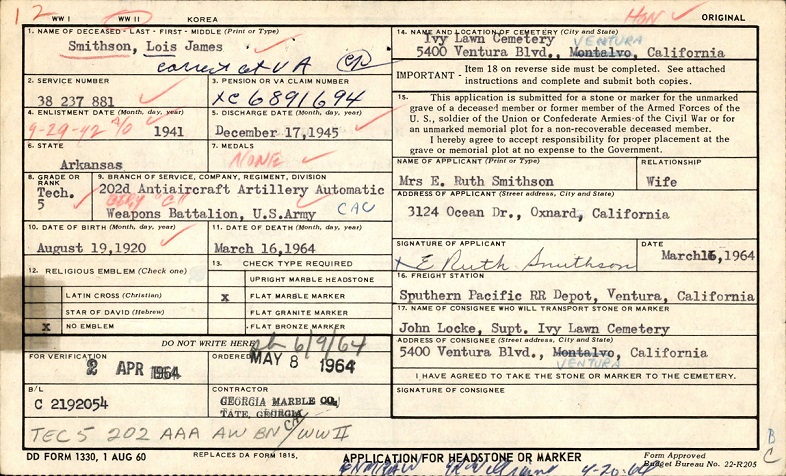 12 WW I WW II KOREA HQN ORIGINAL
1. NAME OF DECEASED - LAST - FIRST - MIDDLE (Print or Type)
Smithson, Lois James
correct at VA
2. SERVICE NUMBER
38 237 881
3. PENSION OR VA CLAIM NUMBER
XC 6891694
4. ENLISTMENT DATE (Month, day, year)
9-29-42 1941
5. DISCHARGE DATE (Month, day, year)
December 17,1945
6. STATE
Arkansas
7. MEDALS
NONE
8. GRADE OR RANK
Tech. 5
9. BRANCH OF SERVICE, COMPANY, REGIMENT, DIVISION
202d Antiaircraft Artillery Automatic
Btry "C"
Weapons Battalion, U.S.Army CAC
10. DATE OF BIRTH (Month, day, year)
August 19,1920
11. DATE OF DEATH (Month, day, year)
March 16,1964
12. RELIGIOUS EMBLEM (Check one)
LATIN CROSS (Christian)
STAR OF DAVID (Hebrew)
X NO EMBLEM
13. CHECK TYPE REQUIRED
UPRIGHT MARBLE HEADSTONE
X FLAT MARBLE MARKER
FLAT GRANITE MARKER
FLAT BRONZE MARKER
DO NOT WRITE HERE
6/9/64
FOR VERIFICATION
2 APR 1964
ORDERED
MAY 8 1964
B/L
C 2192054
CONTRACTOR
GEORGIA MARBLE CO.
TATE, GEORGIA
TEC 5 202 AAA AW BN CAC / WW II
14. NAME AND LOCATION OF CEMETERY (City and State)
Ivy Lawn Cemetery VENTURA
5400 Ventura Blvd., Montalvo, California
IMPORTANT - Item 18 on reverse side must be completed. See attached
instructions and complete and submit both copies.
15. This application is submitted for a stone or marker for the unmarked
grave of a deceased member or former member of the Armed Forces of the
U. S., soldier of the Union or Confederate Armies of the Civil War or for
an unmarked memorial plot for a non-recoverable deceased member.
I hereby agree to accept responsibility for proper placement at the
grave or memorial plot at no expense to the Government.
NAME OF APPLICANT (Print or Type)
Mrs E. Ruth Smithson
RELATIONSHIP
Wife
ADDRESS OF APPLICANT (Street address, City and State)
3124 Ocean Dr., Oxnard, California
SIGNATURE OF APPLICANT
x E Ruth Smithson
DATE
March16,1964
16. FREIGHT STATION
Sputhern Pacific RR Depot, Ventura, California
17. NAME OF CONSIGNEE WHO WILL TRANSPORT STONE OR MARKER
John Locke, Supt. Ivy Lawn Cemetery
ADDRESS OF CONSIGNEE (Street address, City and State)
5400 Ventura Blvd., Montalvo, California
VENTURA
I HAVE AGREED TO TAKE THE STONE OR MARKER TO THE CEMETERY.
SIGNATURE OF CONSIGNEE
B
C
DD FORM 1330, 1 AUG 60
REPLACES DA FORM 1815.
APPLICATION FOR HEADSTONE OR MARKER
4-20-64
Form Approved
Budget Bureau No. 22-R205